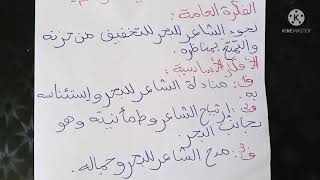 الفكرة العامة:
لجوء الشاعر للبحر للتخفيف من حزنه
والتمتع بمناظره.
الأفكار الأساسية:
ف1: مناداة الشاعر للبحر واستئناسه
به.
ف2: ارتياح الشاعر وطمأنينته وهو
بجانب البحر.
ف3: مدح الشاعر للبحر وجماله.
KINEMASTER